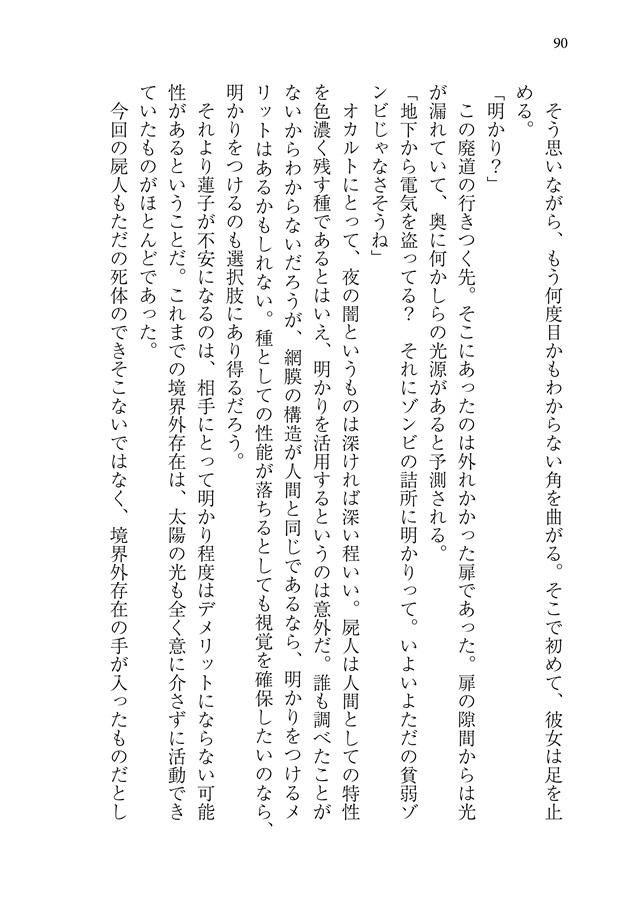 90
そう思いながら、もう何度目かもわからない角を曲がる。そこで初めて、彼女は足を止
める。
「明かり？」
この廃道の行きつく先。そこにあったのは外れかかった扉であった。扉の隙間からは光
が漏れていて、奥に何かしらの光源があると予測される。
「地下から電気を盗ってる？　それにゾンビの詰所に明かりって。いよいよただの貧弱ゾ
ンビじゃなさそうね」
オカルトにとって、夜の闇というものは深ければ深い程いい。屍人は人間としての特性
を色濃く残す種であるとはいえ、明かりを活用するというのは意外だ。誰も調べたことが
ないからわからないだろうが、網膜の構造が人間と同じであるなら、明かりをつけるメ
リットはあるかもしれない。種としての性能が落ちるとしても視覚を確保したいのなら、
明かりをつけるのも選択肢にあり得るだろう。
それより蓮子が不安になるのは、相手にとって明かり程度はデメリットにならない可能
性があるということだ。これまでの境界外存在は、太陽の光も全く意に介さずに活動でき
ていたものがほとんどであった。
今回の屍人もただの死体のできそこないではなく、境界外存在の手が入ったものだとし